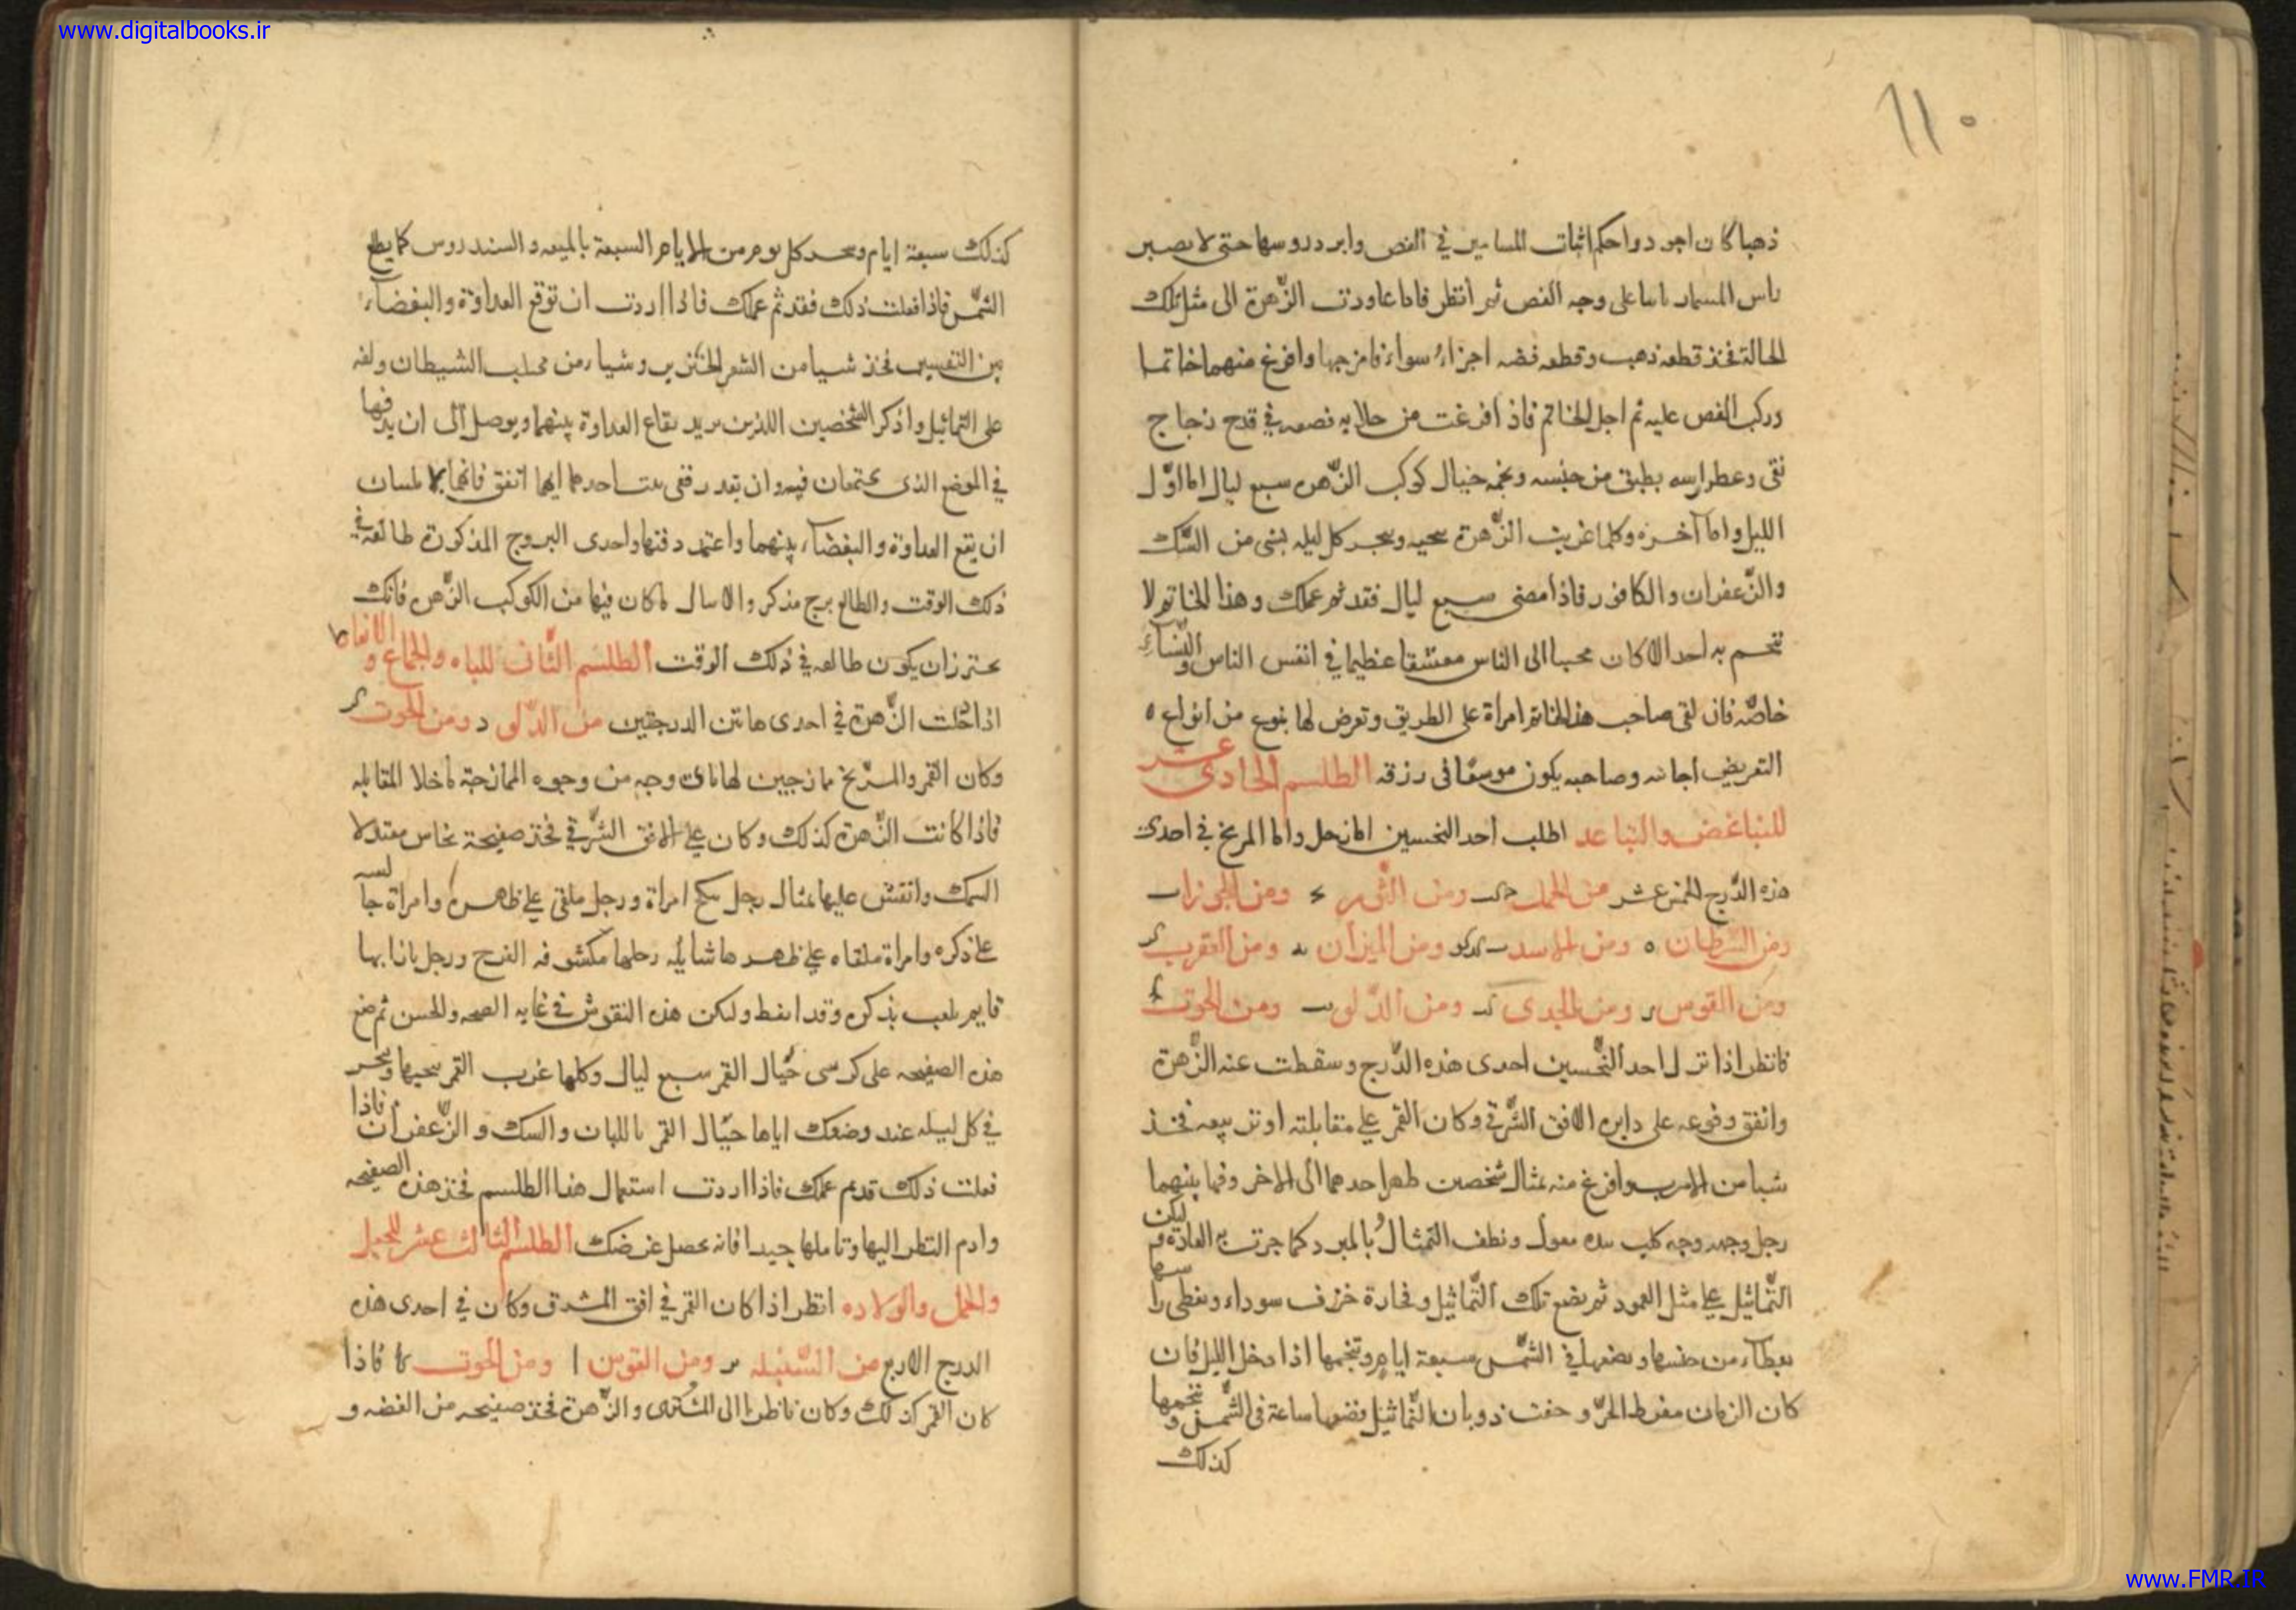 www.digitalbooks.ir
١١٠
ذهبا كان اجود واحكم اثبات المسامير في الفص وابرد روسها حتى لا يصير
راس المسمار على وجه الفص ثم انتظر فاذا عاودت الزهرة الى مثل تلك
الحالة فخذ قطعة ذهب وقطعه فضه اجزاء سواء فامزجها وافرغ منهما خاتما
وركب الفص عليه ثم اجل الخاتم فاذ افرغت من جلايه فصعه في قدح زجاج
نقى وغط راسه بطبق من جنسه ونجمه حيال كوكب الزهره سبع ليال اما اول
الليل واما آخره وكلما غربت الزهرة نحيه وبخر كل ليله بشى من السك
والزعفران والكافور فاذا مضى سبع ليال فقد تم عملك وهذا الخاتم لا
تختم به احد الا كان محببا الى الناس معشقا عظيما في انفس الناس والنساء
خاصه فان لقى صاحب هذا الخاتم امراة على الطريق وتعرض لها بنوع من انواع
التعريض اجابته وصاحبه يكون موسعا فى رزقه الطلسم الحادى عشر
للتباغض والتباعد اطلب احد النحسين اما زحل واما المريخ في احدى
هذه الدرج الخمس عشر من الحمل ومن الثور ومن الجوزا
ومن السرطان ه ومن الاسد ومن الميزان ومن العقرب
ومن القوس ومن الجدى ومن الدلو ومن الحوت
فانظر اذا نزل احد النحسين احدى هذه الدرج وسقطت عنه الزهرة
واتفق وقوعه على دايره الافق الشرقي وكان القمر على مقابلته او تربيعه فخذ
شيا من الاسرب وافرغ منه مثال شخصين ظهر احدهما الى الاخر وفيما بينهما
رجل وجهه وجه كلب بيده معول ونظف التمثال بالمبرد كما جرت به العادة وليكن
التماثيل على مثل العمود ثم يضع تلك التماثيل وفخارة خزف سوداء ويغطى راسها
بغطاء من جنسها ويضعها في الشمس سبعة ايام وتنجمها اذا دخل الليل فان
كان الزمان مفرط الحر وخفت ذوبان التماثيل فضعها ساعة فى الشمس ونجمها
كذلك
كذلك سبعة ايام وبخر كل يوم من الايام السبعة بالميعه والسندروس كما يطلع
الشمس فاذا فعلت ذلك فقد تم عملك فاذا اردت ان توقع العداوة والبغضاء
بين النفسين فخذ شيا من الشعر الخنزير وشيا من مخلب الشيطان ولفه
على التماثيل واذكر الشخصين اللذين يريد ايقاع العداوة بينهما ويوصل الى ان يدفنها
في الموضع الذى يجتمعان فيه وان تعذر ففى بيت احدهما ايهما اتفق فانهما لا يلبثان
ان يقع العداوة والبغضاء بينهما واعتمد دفنها واحدى البروج المذكورة طالعة في
ذلك الوقت والطالع برج مذكر والا سال ما كان فيها من الكوكب الزهره فانك
تحترز ان يكون طالعه في ذلك الوقت الطلسم الثانى للباه والجماع والانعاظ
اذا حلت الزهرة في احدى هاتين الدرجتين من الدلو د ومن الحوت
وكان القمر والمريخ ممازجين لها باى وجه من وجوه الممازجة ما خلا المقابله
فاذا كانت الزهرة كذلك وكان على الافق الشرقي فخذ صفيحة نحاس معتدلا
السمك وانقش عليها مثال رجل ينكح امراة ورجل ملقى على ظهره وامراة جالسه
على ذكره وامراة ملقاه على ظهرها شايله رجلها مكشوفه الفرج ورجل بازايها
قايم يلعب بذكره وقد انعظ ولكن هذه النقوش في غايه الصحه والحسن ثم ضع
هذه الصفيحه على كرسى حيال القمر سبع ليال وكلما غرب القمر نحيها وبخر
في كل ليله عند وضعك اياها حيال القمر باللبان والسك والزعفران فاذا
فعلت ذلك فقد تم عملك فاذا اردت استعمال هذا الطلسم فخذ هذه الصفيحه
وادم النظر اليها وتاملها جيدا فانه يحصل غرضك الطلسم الثالث عشر للحبل
والحمل والولاده انظر اذا كان القمر في افق المشرق وكان في احدى هذه
الدرج الاربع من السنبله ومن القوس ا ومن الحوت كا فاذا
كان القمر كذلك وكان ناظرا الى المشترى والزهرة فخذ صفيحه من الفضه و
www.FMR.IR